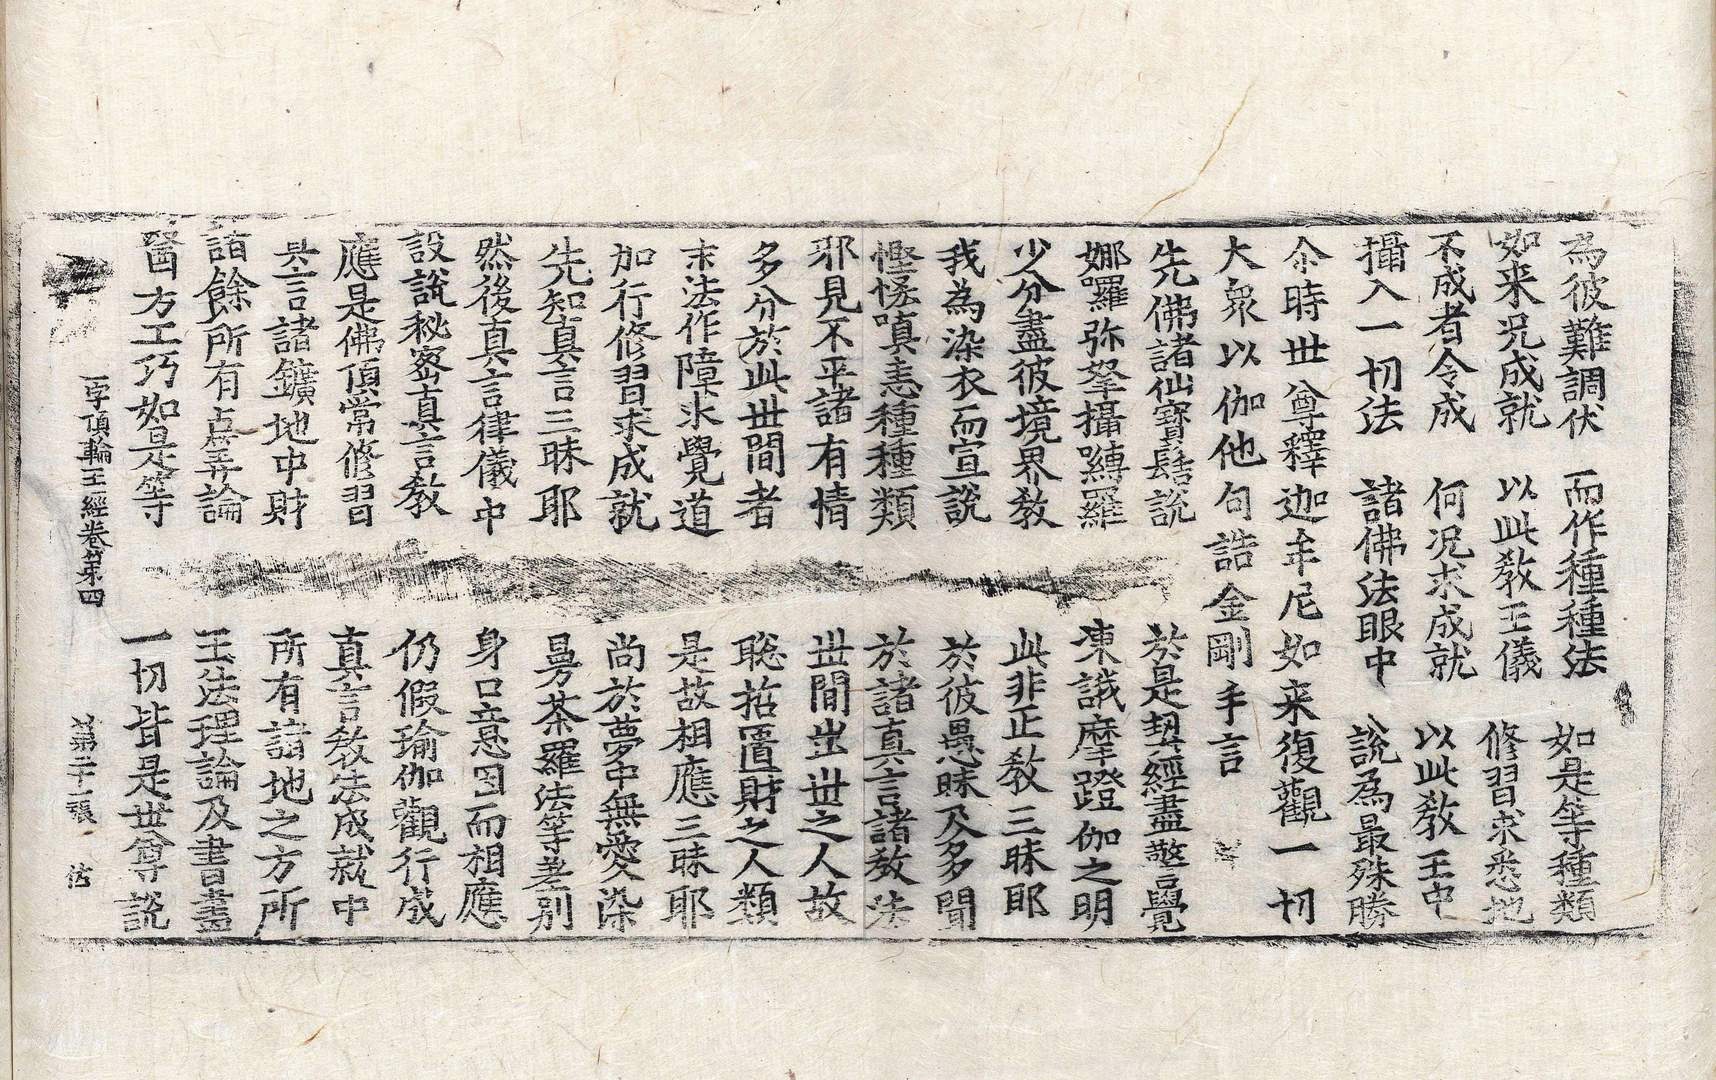 為彼難調伏　而作種種法　如是等種類
如来况成就　以此教王儀　修習求悉地
不成者令成　何况求成就　以此教王中
攝入一切法　諸佛法眼中　說為最殊勝
尒時世尊釋迦牟尼如来復觀一切
大衆以伽他句誥金剛手言
先佛諸仙寶髻說　於是契經盡警覺
娜囉弥拏攝嚩羅　凍誐摩蹬伽之明
少分盡彼境界教　此非正教三昧耶
我為染衣而宣說　於彼愚昧及多聞
慳悋嗔恚種種類　於諸真言諸教法
邪見不平諸有情　世間出世之人故
多分於此世間者　聡招匱財之人類
末法作障氷覺道　是故相應三昧耶
加行修習求成就　尚於夢中無愛染
先知真言三昧耶　曼茶羅法等差別
然後真言律儀中　身口意因而相應
設說秘密真言教　仍假瑜伽觀行成
應是佛頂常修習　真言教法成就中
具言諸鑛地中財　所有諸地之方所
諸餘所有占筭論　王法理論及書畫
醫方工巧如是等　一切皆是世尊說
一字頂輪王經卷第四　第二十一張